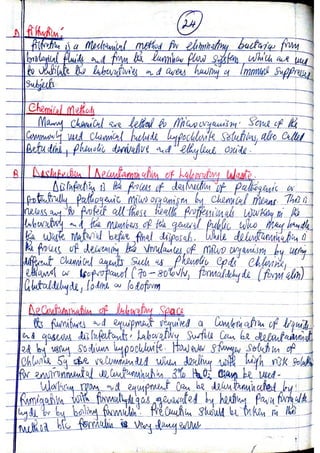 24
Filtration:
Filtration is a Mechanical method for eliminating bacteria from
biological fluids and from the laminar flow system which are used
to ventilate the laboratories and areas having a Immune Suppressed
subjects.
Chemical Methods
Many Chemical are lethal to Microorganism. Some of the
Commonly used Chemical include hypochlorite solutions, also Called
Betadine, phenolic derivative and ethylene oxide.
Disinfection / Decontamination of Laboratory Waste.
Disinfecting is the process of destruction of pathogenic or
potentially pathogenic microorganism by Chemical means. This is
necessary to protect all those health Professionals working in the
laboratory and the members of the general public who may handle
the waste material before final disposal. While decontamination is
the process of decreasing the virulences of micro organism by using
different Chemical agents such as Phenolic Cpds Chlorine,
ethanol or Isopropanol (70-80% v/v, formaldehyde (formalin)
Glutaldhyde, Iodine or Iodoform
Decontamination of laboratory Space
Its furnitures and equipment required a Combination of liquids
and gaseous disinfectants. Laboratory surface Can be decontaminat
ed by using sodium hypochlorite. However stronger solution of
Chlorine 5g are recommended when dealing with high risk
for environmental decontamination. 3% H2O2 Can be used.
Working room and equipment Can be decontaminated by
fumigation with formaldehyde gas generated by heating paraformalde
hyde or by boiling formalin. Precaution should be taken in this
method b/c formalin is very dangerous